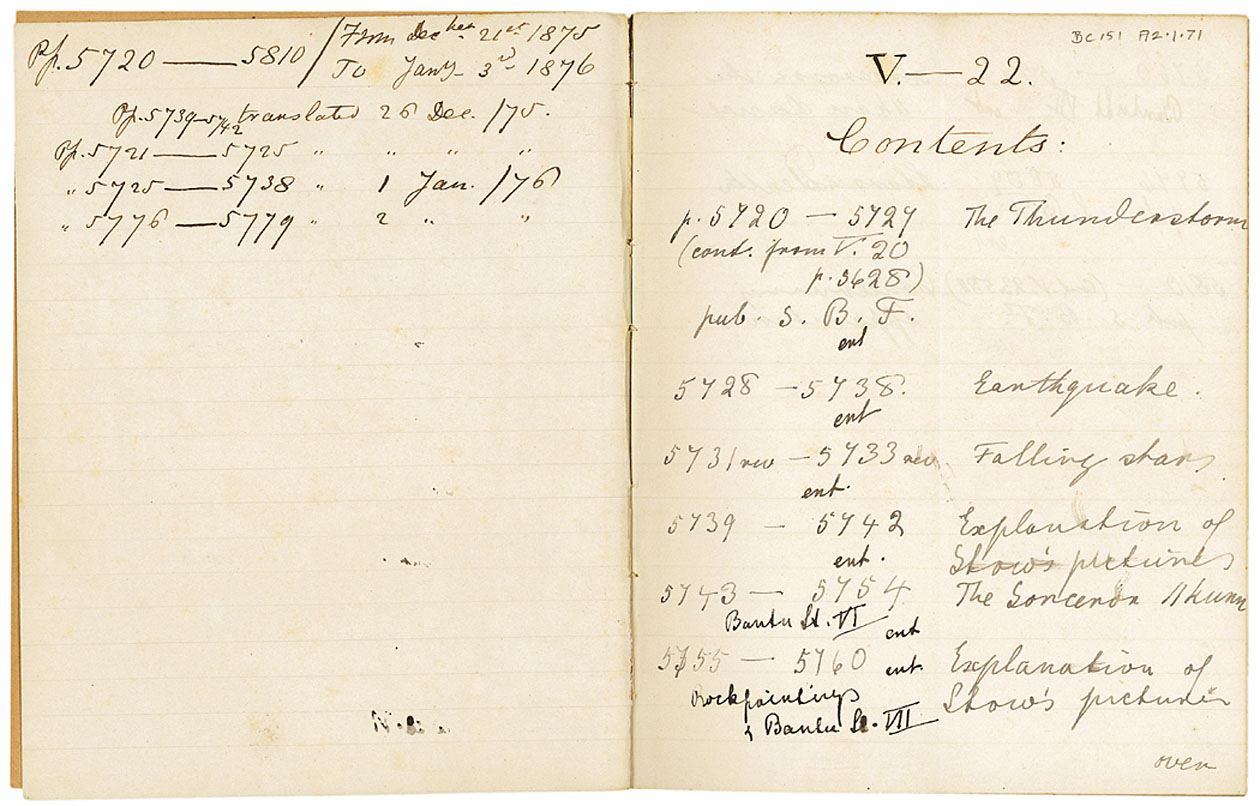 Pp. 5720 — 5810 / From Decber 21st 1875
To Jany 3rd 1876
Pp. 5739-5742 translated 26 Dec. /75.
Pp. 5721 — 5725 " " " "
" 5725 — 5738 " 1 Jan. /76
" 5776 — 5779 " 2 " "
BC 151 A2.1.71
V. — 22.
Contents:
p. 5720 — 5727 The Thunderstorm
(cont. from V. 20
p. 5628)
pub. S. B. F.
ent
5728 — 5738. Earthquake.
ent
5731 rev — 5733 rev Falling stars
ent.
5739 — 5742 Explanation of
ent. Stow's pictures
5743 — 5754 The Sorcerer //kunn
Bantu St. VI ent
5755 — 5760 ent. Explanation of
Rockpaintings Stow's pictures
& Bantu St. VII
over